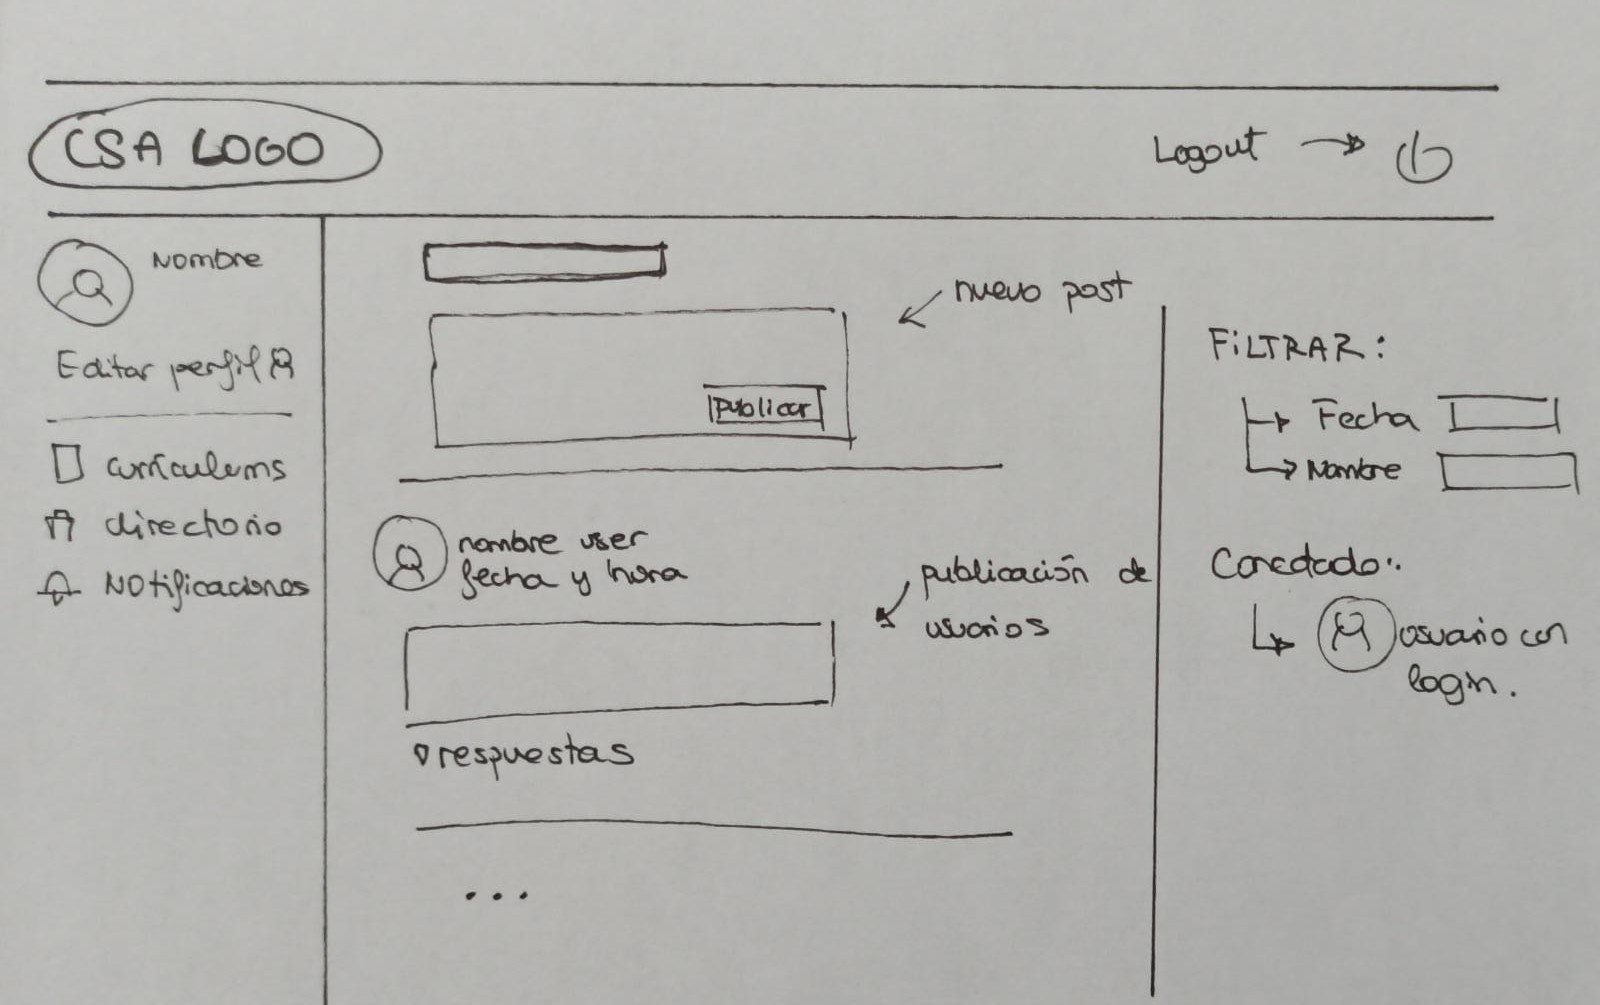 CSA LOGO
Logout
Nombre
Editar perfil
currículums
directorio
Notificaciones
nuevo post
publicar
nombre user
fecha y hora
publicación de
usuarios
respuestas
...
FILTRAR:
Fecha
Nombre
Conectado:
usuario con
login.